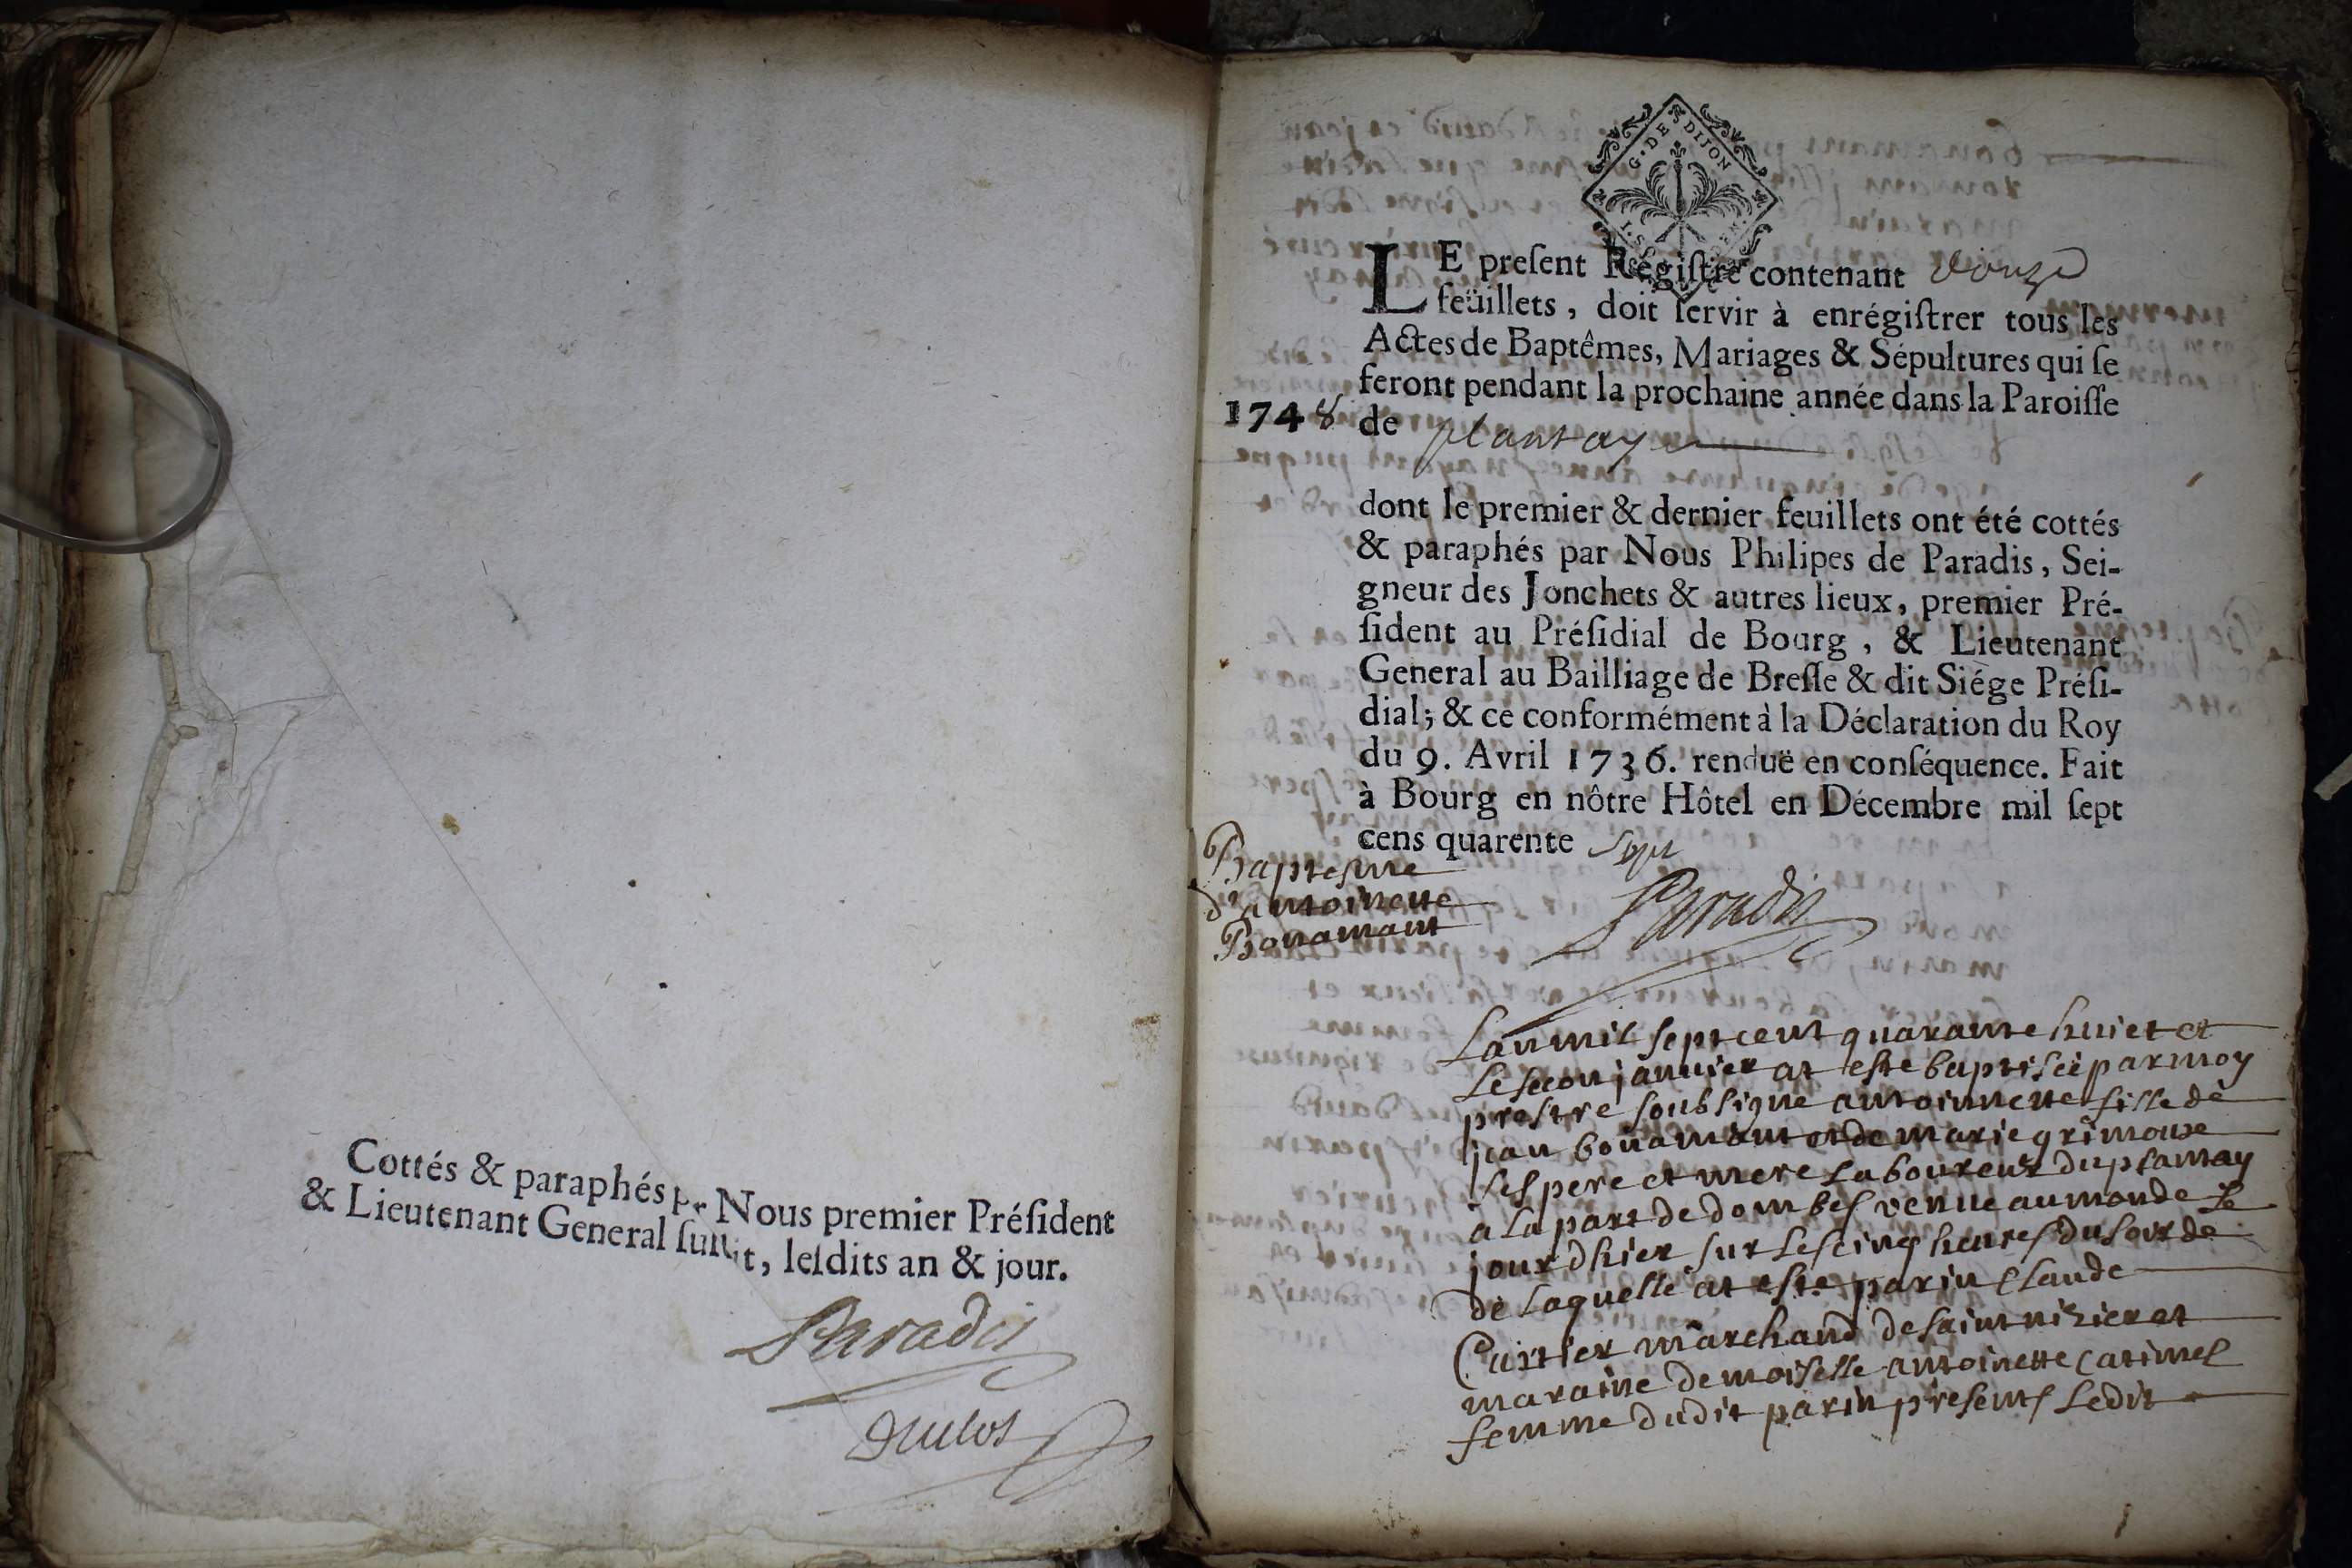 Cottés & paraphés pr Nous premier Président
& Lieutenant General susdit, lesdits an & jour.
Paradis
G. DE DIJON
LE present Régistre contenant douze
feüillets, doit servir à enrégistrer tous les
Actes de Baptêmes, Mariages & Sépultures qui se
feront pendant la prochaine année dans la Paroisse
1748 de plantay
dont le premier & dernier feuillets ont été cottés
& paraphés par Nous Philipes de Paradis, Sei-
gneur des Jonchets & autres lieux, premier Pré-
sident au Présidial de Bourg, & Lieutenant
General au Bailliage de Bresse & dit Siége Prési-
dial; & ce conformément à la Déclaration du Roy
du 9. Avril 1736. renduë en conséquence. Fait
à Bourg en nôtre Hôtel en Décembre mil sept
cens quarente sept
Baptesme
d'antoinette
Bonamant
Paradis
Lan mil sept cent quarante huict et
le secon janvier at este baptisée par moy
prestre soubsigne antoinnette fille de
jean bonamant et de marie grimouse
ses pere et mere laboureur du plantay
a la part de dombes venue au monde le
jour dhier sur les cinq heures du soir de
de laquelle at este parin Claude
Cartier marchand de saint nizier et
maraine demoiselle antoinette
femme dudit parin presents ledit